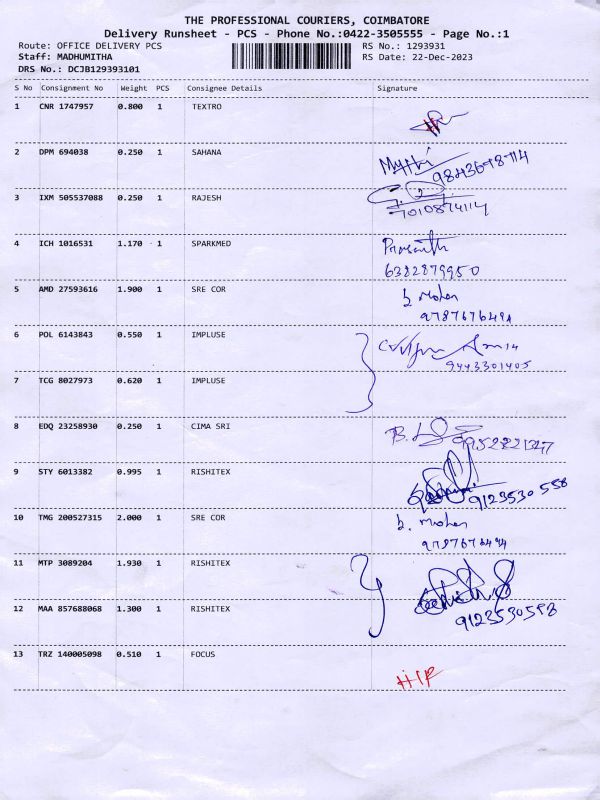 THE PROFESSIONAL COURIERS, COIMBATORE
Delivery Runsheet - PCS - Phone No.:0422-3505555 - Page No.:1
Route: OFFICE DELIVERY PCS RS No.: 1293931
Staff: MADHUMITHA RS Date: 22-Dec-2023
DRS No.: DCJB129393101
S No Consignment No Weight PCS Consignee Details Signature
1 CNR 1747957 0.800 1 TEXTRO
2 DPM 694038 0.250 1 SAHANA
9843698714
3 IXM 505537088 0.250 1 RAJESH
7010874114
4 ICH 1016531 1.170 1 SPARKMED Prasanth
6382879950
5 AMD 27593616 1.900 1 SRE COR
9787676494
6 POL 6143843 0.550 1 IMPLUSE
9443301405
7 TCG 8027973 0.620 1 IMPLUSE
8 EDQ 23258930 0.250 1 CIMA SRI
9 STY 6013382 0.995 1 RISHITEX
9123530558
10 TMG 200527315 2.000 1 SRE COR
9787676494
11 MTP 3089204 1.930 1 RISHITEX
12 MAA 857688068 1.300 1 RISHITEX
9123530558
13 TRZ 140005098 0.510 1 FOCUS